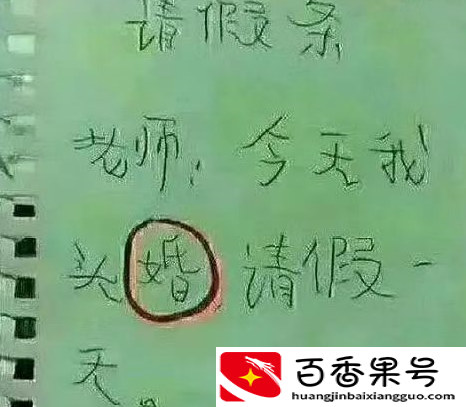 请假条
老师：今天我
头婚请假一
天。
百香果号
huangjinbaixiangguo.com